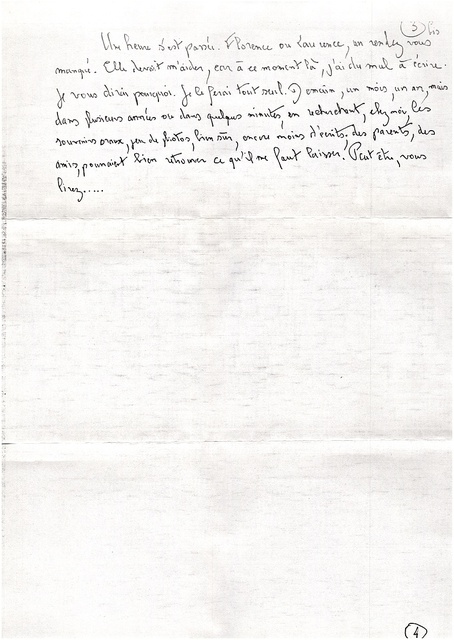 3 bis
Une heure s'est passée. Florence ou Laurence, un rendez vous
manqué. Elle devait m'aider, car à ce moment là, j'ai du mal à écrire.
Je vous dirai pourquoi. Je le ferai tout seul. Demain, un mois, un an, mais
dans plusieurs années ou dans quelques minutes, en recherchant, chez moi, les
souvenirs oraux, peu de photos, bien sûr, encore moins d'écrits, des parents, des
amis, pourraient bien retrouver ce qu'il me faut laisser. Peut être, vous
lirez.....
4